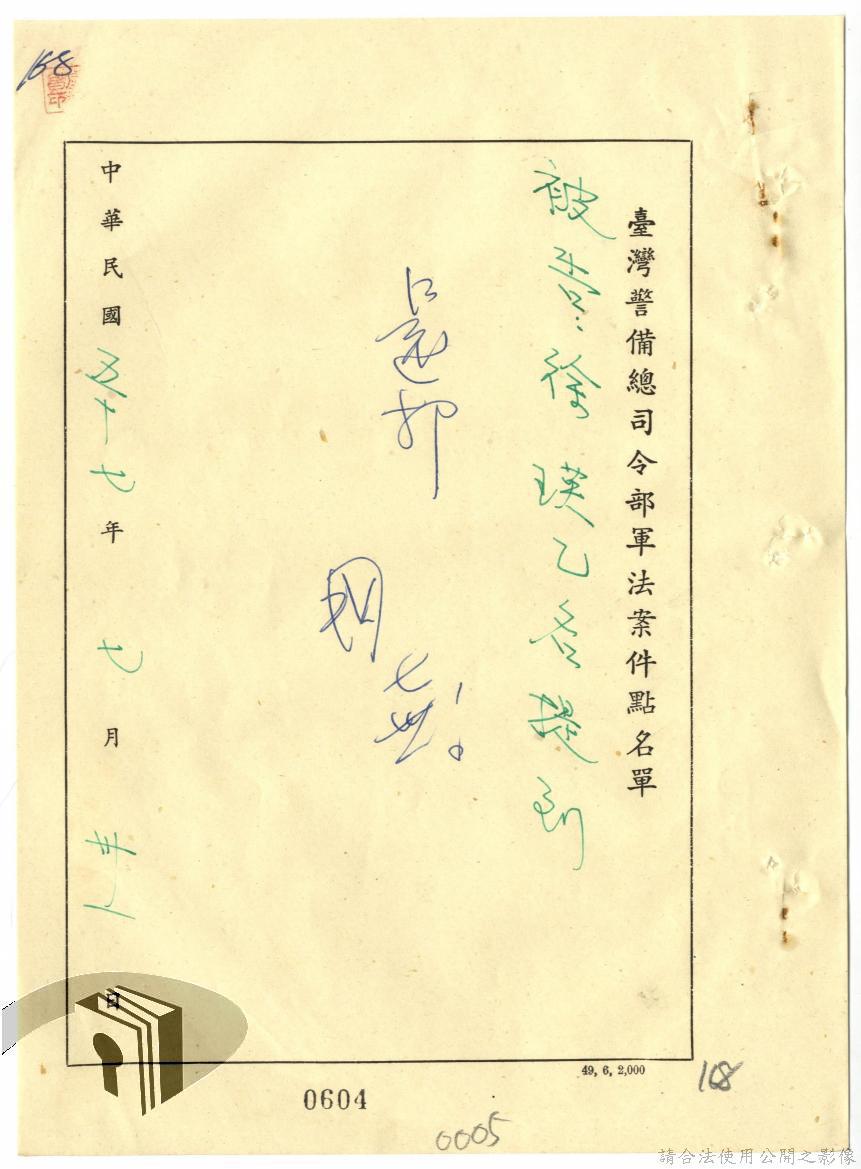 168
臺灣警備總司令部軍法案件點名單
被告：徐瑛乙名提到
還押
七卅一
中華民國五十七年七月卅一日
49, 6, 2,000
168
0604
0005
請合法使用公開之影像